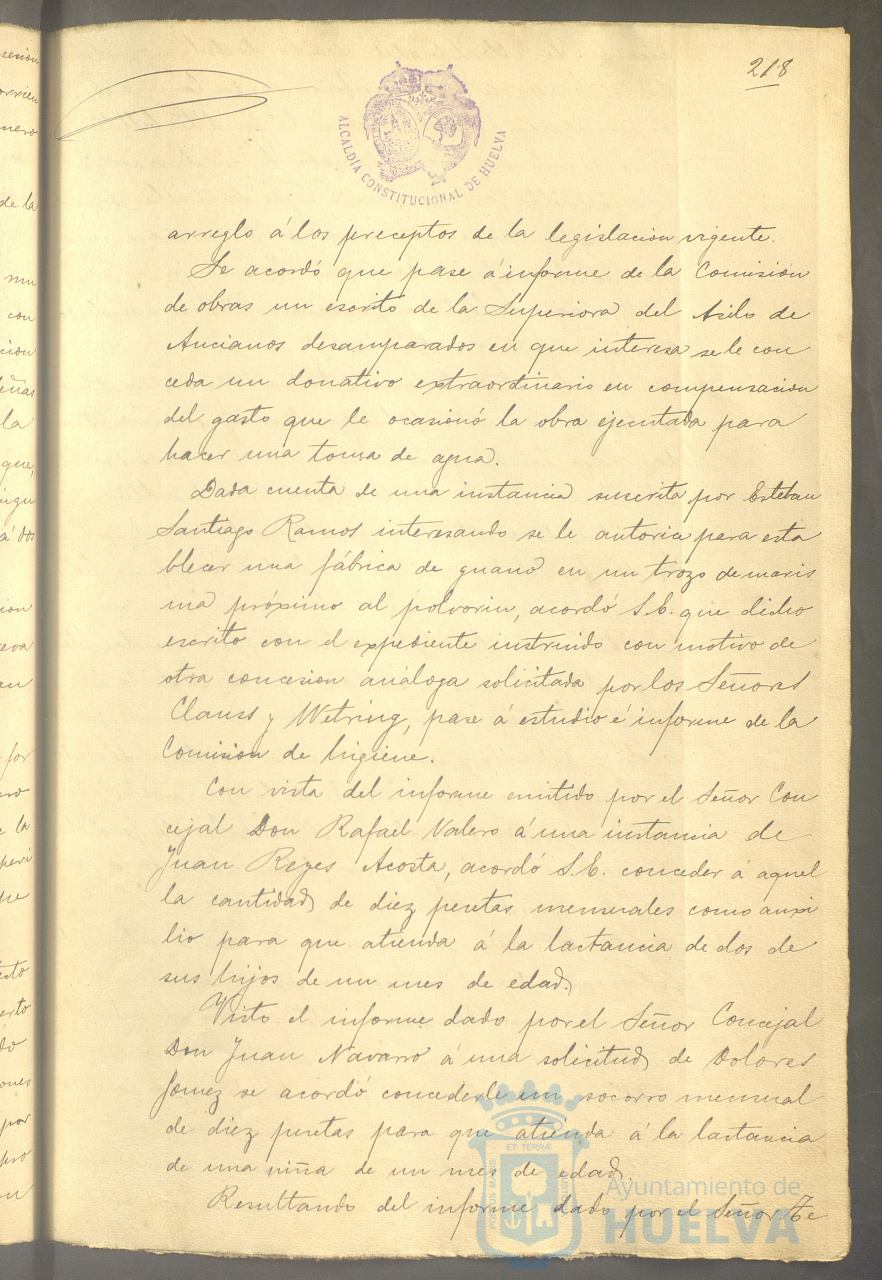 218
ALCALDÍA CONSTITUCIONAL DE HUELVA
arreglo á los preceptos de la legislacion vigente.
Se acordó que pase á informe de la Comisión
de obras un escrito de la Superiora del Asilo de
Ancianos desamparados en que interesa se le con
ceda un donativo extraordinario en compensacion
del gasto que le ocasionó la obra ejecutada para
hacer una toma de agua.
Dada cuenta de una instancia suscrita por Esteban
Santiago Ramos interesando se le autorice para esta
blecer una fábrica de guano en un trozo de maris
ma próximo al polvorin, acordó S.E. que dicho
escrito con el expediente instruido con motivo de
otra concesion análoga solicitada por los Señores
Clauss y Wetring, pase á estudio é informe de la
Comision de higiene.
Con vista del informe emitido por el Señor Con
cejal Don Rafael Valero á una instancia de
Juan Reyes Acosta, acordó S.E. conceder á aquel
la cantidad de diez pesetas mensuales como auxi
lio para que atienda á la lactancia de dos de
sus hijos de un mes de edad.
Visto el informe dado por el Señor Concejal
Don Juan Navarro á una solicitud de Dolores
Gomez se acordó concederle un socorro mensual
de diez pesetas para que atienda á la lactancia
de una niña de un mes de edad.
Resultando del informe dado por el Señor Te
Ayuntamiento de
HUELVA